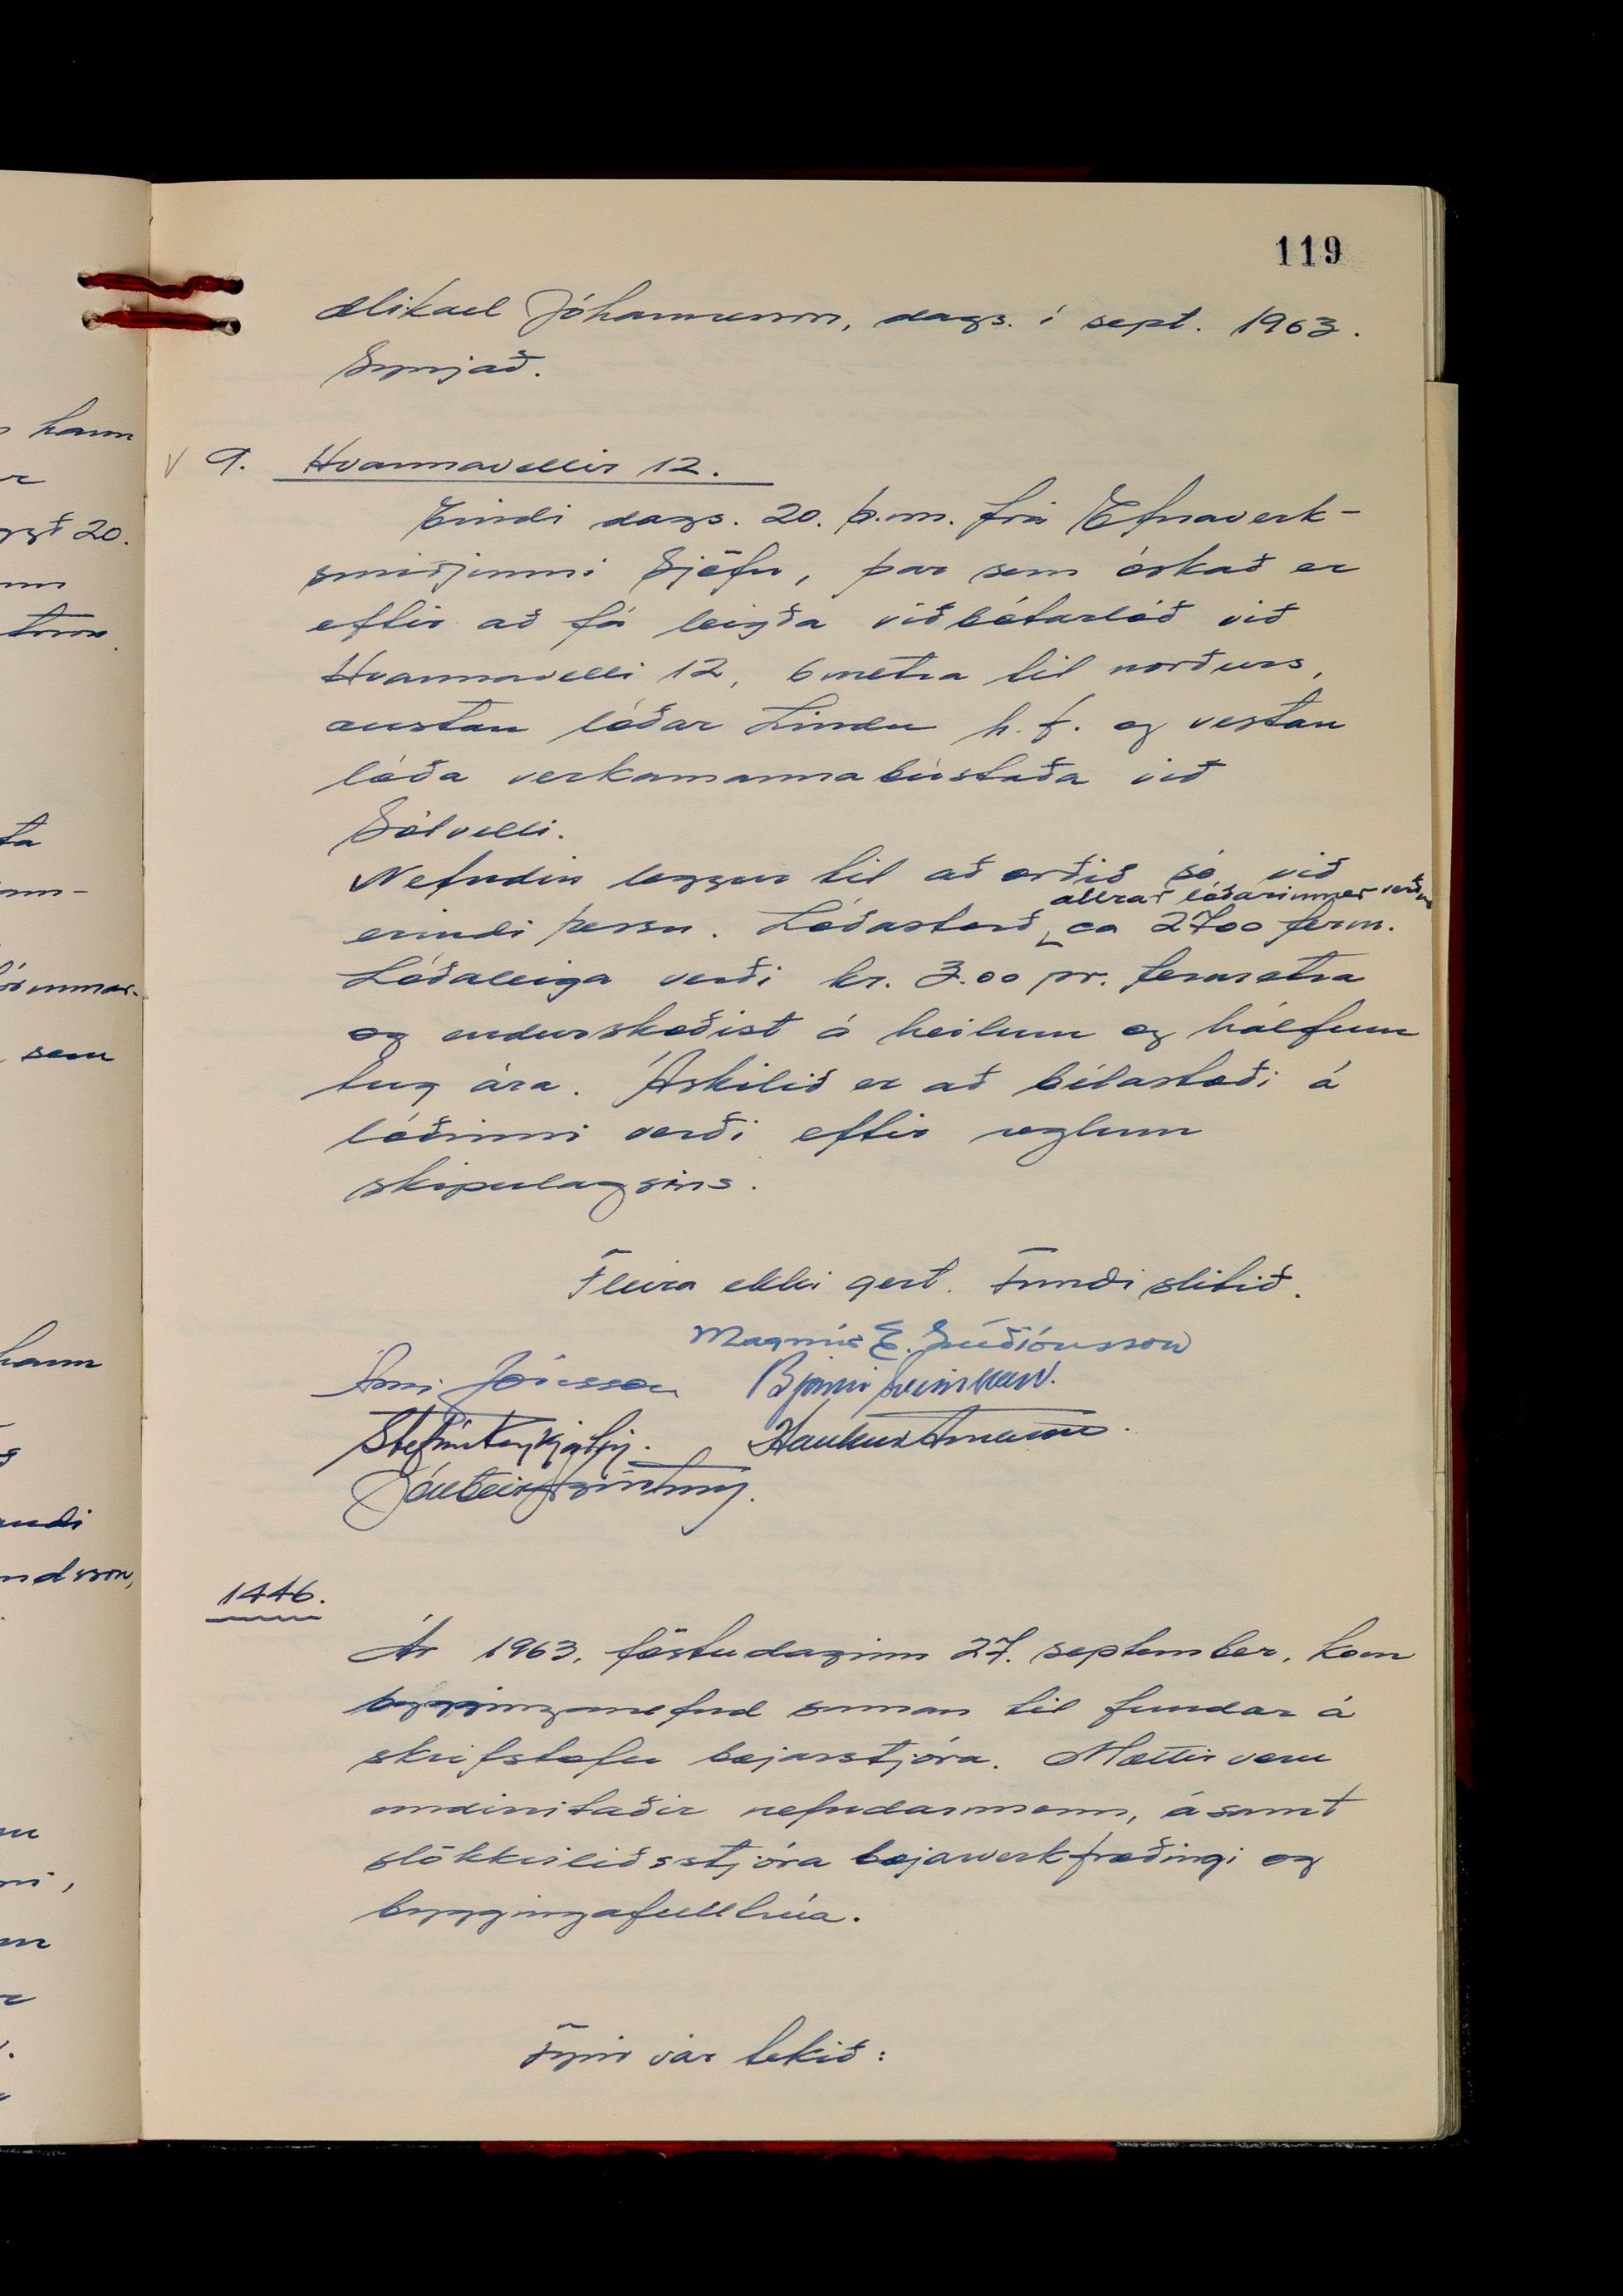 119
Mikael Jóhannesson, dags. í sept. 1963.
Synjað.
v 9. Hvannavellir 12.
Erindi dags. 20. þ.m. frá Efnaverk-
smiðjunni Sjöfn, þar sem óskað er
eftir að fá leigða viðbótarlóð við
Hvannavelli 12, 6 metra til norðurs,
austan lóðar Lindu h.f. og vestan
lóða verkamannabústaða við
Sólvelli.
Nefndin leggur til að orðið sé við
allrar lóðarinnar verður
erindi þessu. Lóðastærð ca 2700 ferm.
Lóðaleiga verði kr. 3.00 pr. fermetra
og endurskoðist á heilum og hálfum
tug ára. Áskilið er að bílastæði á
lóðinni verði eftir reglum
skipulagsins.
Fleira ekki gert. Fundi slitið.
Magnús E. Guðjónsson
Árni Jónsson Bjarni Sveinsson.
Stefán Reykjalín. Haukur Árnason.
1446.
Ár 1963, föstudaginn 27. september, kom
bygginganefnd saman til fundar á
skrifstofu bæjarstjóra. Mættir voru
undirritaðir nefndarmenn, ásamt
slökkviliðsstjóra bæjarverkfræðingi og
byggingafulltrúa.
Fyrir var tekið:
hann
20.
sem
hann